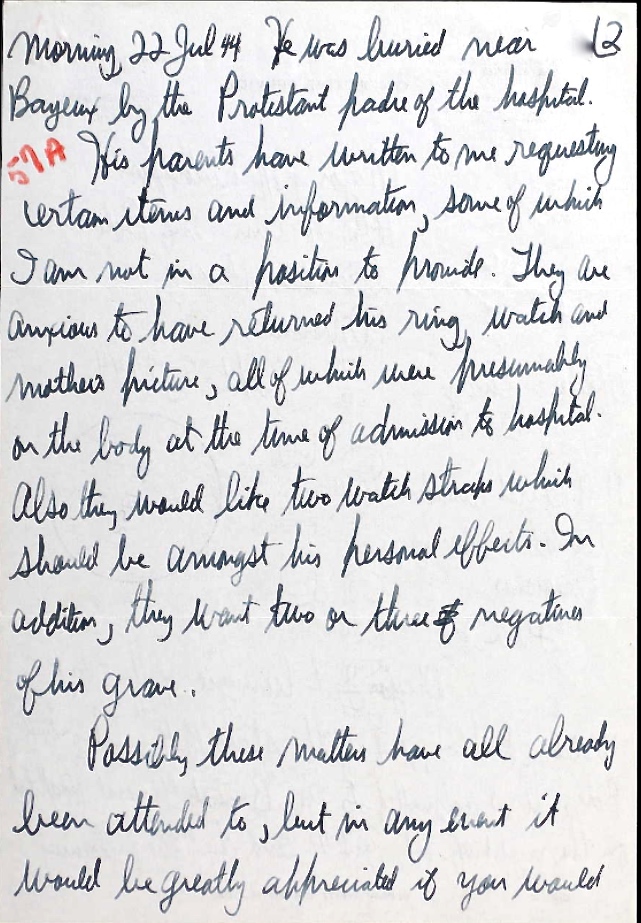 Morning, 22 Jul 44 He was buried near 12
Bayeux by the Protestant padre of the hospital.
57A His parents have written to me requesting
certain items and information, some of which
I am not in a position to provide. They are
anxious to have returned his ring, watch and
mothers picture, all of which were presumably
on the body at the time of admission to hospital.
Also they would like two watch straps which
should be amongst his personal effects. In
addition, they want two or three negatives
of his grave.
Possibly these matters have all already
been attended to, but in any event it
would be greatly appreciated if you would